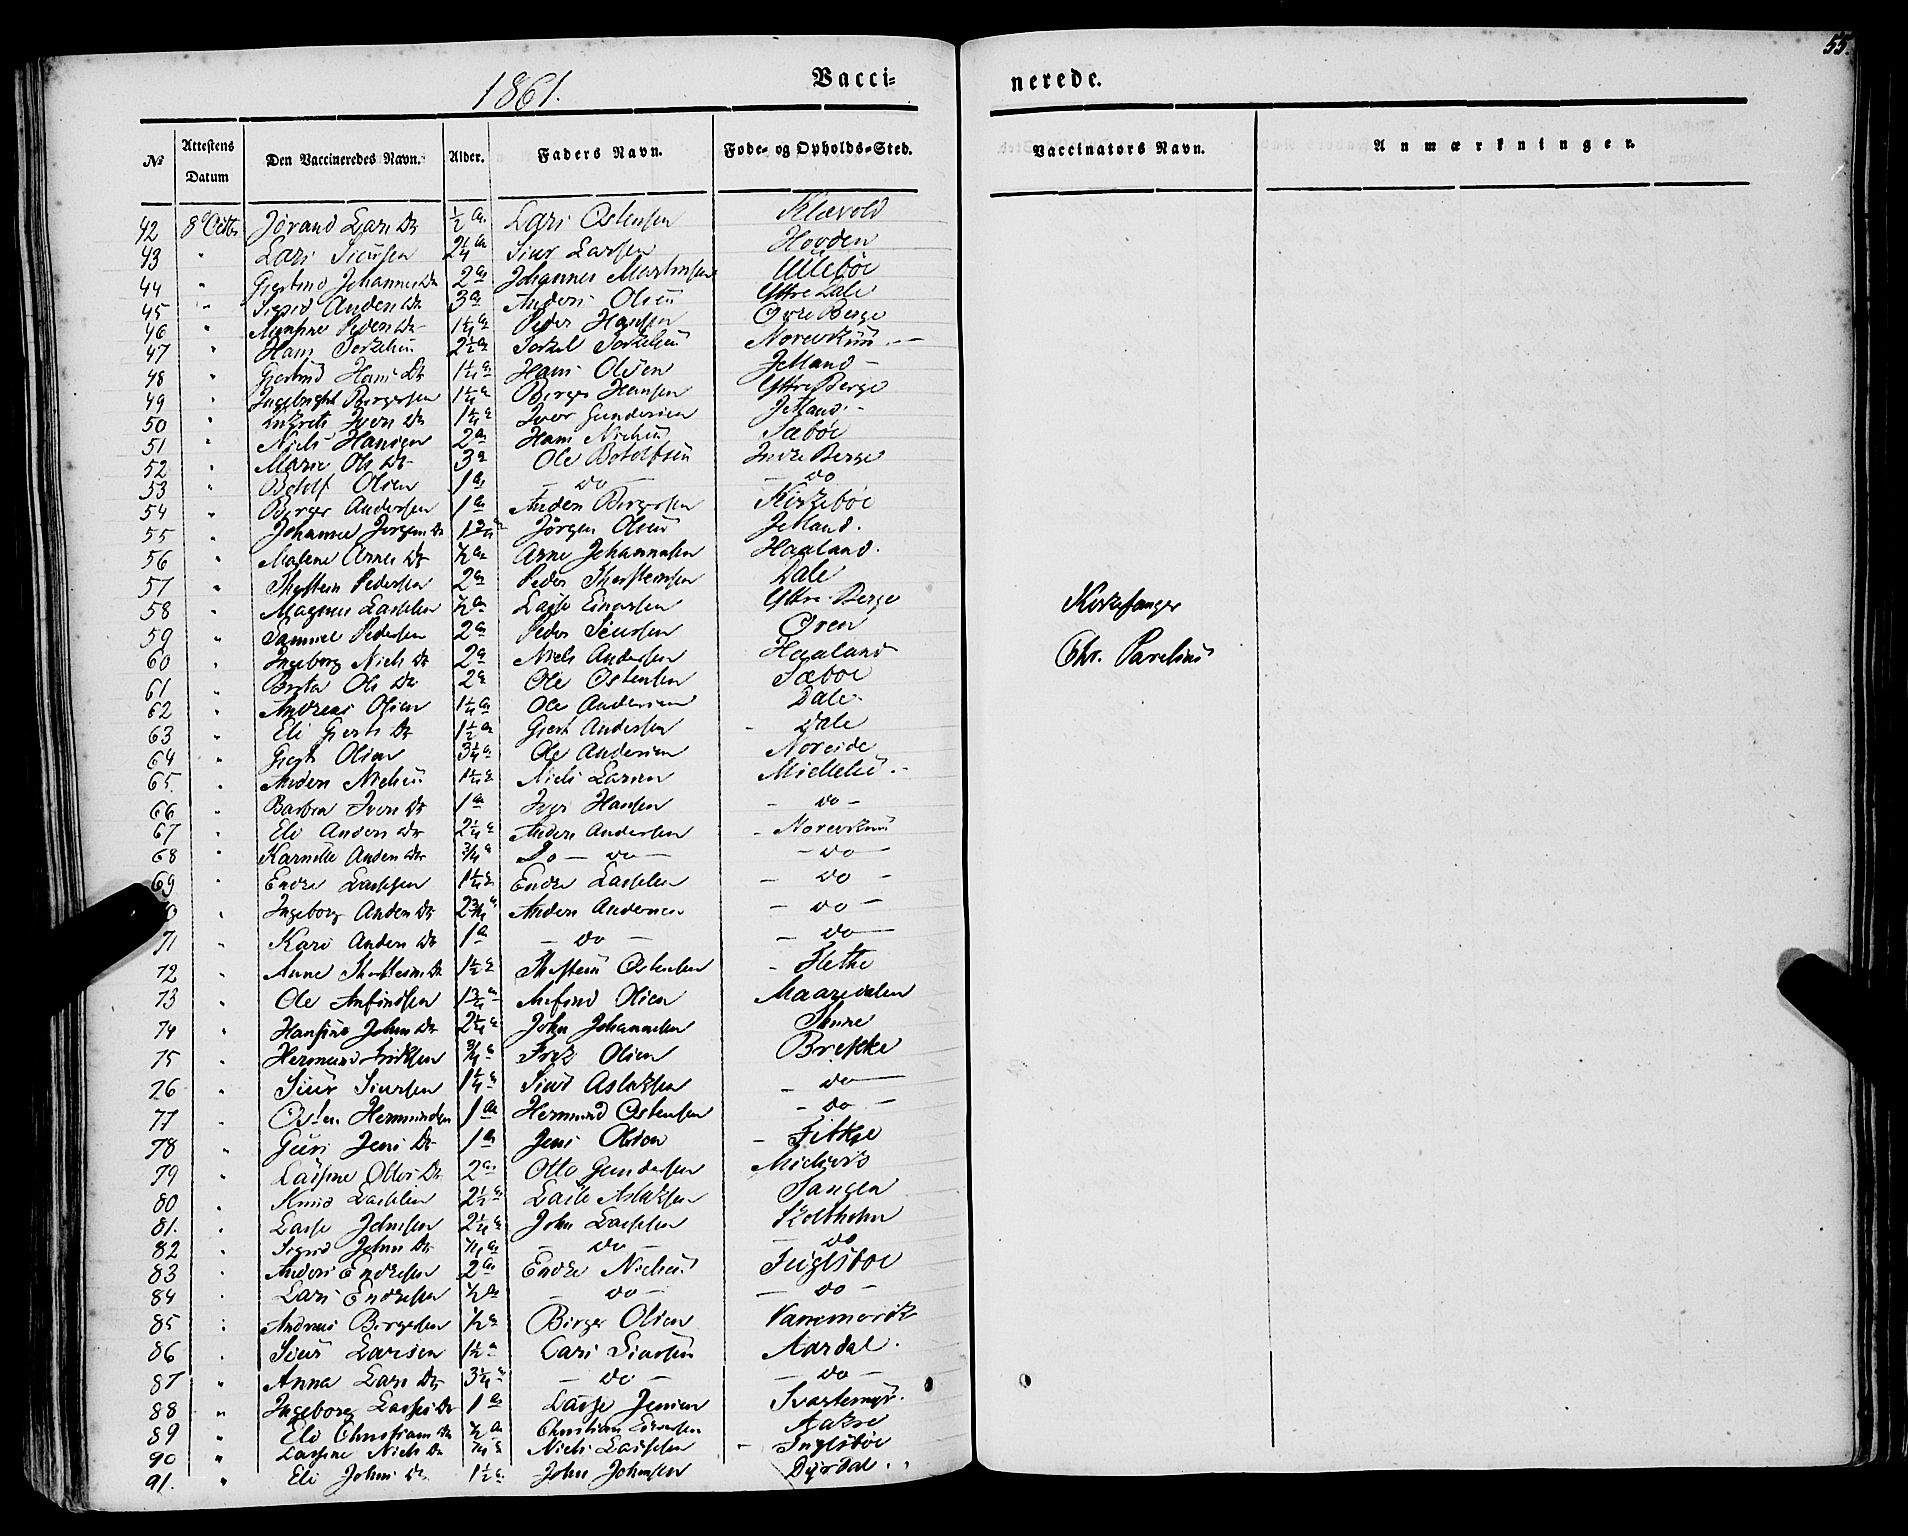 55.
1861.
Vacci-
nerede.
№ Attestens Datum Den Vaccineredes Navn. Alder. Faders Navn. Føde- og Opholds-Sted. Vaccinators Navn. Anmærkninger.
42 8de Octbr Jørand Lars Dr ½ a Lars Ostensen Klævold
43 " Lars Siursen 2¼ a Siur Larsen Hovden
44 " Gjertrud Johannes Dr 2 a Johannes Martinsen Ullebøe
45 " Sigrid Anders Dr 3 a Anders Olsen Yttre Dale
46 " Peders Dr 1¼ a Peder Hansen Øvre Berge
47 " Hans Torkelsen 2½ a Torkel Torkelsen
48 " Gjertrud Hans Dr 1¼ a Hans Olsen Jetland
49 " Ingebright Børgersen 1¼ a Børger Hansen Yttre Berge
50 " Ivers Dr 1¼ a Iver Gundersen Jetland
51 " Niels Hansen 2 a Hans Nielsen Sæbøe
52 " Marie Ols Dr 3 a Ole Botolfsen Indre Berge
53 " Botolf Olsen 1 a — do — — do
54 " Børger Andersen 1 a Anders Børgersen Kirkebøe
55 " Johanne Jørgens Dr 1¾ a Jørgen Olsen Jetland.
56 " Malene Arnes Dr ½ a Arne Johannesen Haaland.
57 " Thorstein Pedersen 2 a Peder Thorsteinsen Dale
58 " Magnus Lassesen ½ a Lasse Einarsen Yttre Berge
Kirkesanger
59 " Samuel Pedersen 2 a Peder Siursen Øren
60 " Ingeborg Niels Dr 2 a Niels Andersen Haaland
Chr. Parelius
61 " Brita Ols Dr 2 a Ole Ostensen Sæbøe
62 " Andreas Olsen 1¼ a Ole Andersen Dale
63 " Eli Gjerts Dr 1½ a Gjert Andersen Dale
64 " Gjert Olsen 3¼ a Ole Andersen Noreide
65. " Anders Nielsen 1¼ a Niels Larsen
66 " Barbra Ivers Dr 1 a Iver Hansen — do —
67 " Eli Anders Dr 2¼ a Anders Andersen
68 " Anders Dr ¾ a Do — do — — do —
69 " Endre Lassesen 1¼ a Endre Lassesen — do —
Ingeborg Anders Dr 2¾ a Anders Andersen — do —
71 " Kari Anders Dr 1 a — do — — do —
72 " Anne Thorsteins Dr 1½ a Thorstein Ostensen Flethe
73 " Ole Anfindsen 1¾ a Anfind Olsen Maaredalen
74 " Hansine Johns Dr 2¼ a John Johannesen Thune
75 " Hermund Eriksen ¾ a Erik Olsen Brekke
76 " Siur Siursen 1¼ a Siur Aslaksen — do —
77 " Osten Hermundsen 1 a Hermund Ostensen — do —
78 " Guri Jens Dr 1 a Jens Olsen
79 " Lassine Ottos Dr 2 a Otto Gundersen
80 " Knud Lassesen 2½ a Lasse Aslaksen Tangen
81. " Lasse Johnsen 2¼ a John Lassesen Skoltholm
82 " Sigrid Johns Dr a — do — — do
83 " Anders Endresen 2 a Endre Nielsen Fuglsbøe
84 " Lars Endresen ½ a — do — — do —
85 " Andreas Børgersen ½ a Børger Olsen
86 " Siur Larsen 1½ a Lars Siursen Aardal.
87 " Anna Lars Dr 3¼ a — do — — do —
88 " Ingeborg Lasses Dr 1 a Lasse Jensen Svartemyr.
89 " Eli Christians Dr ½ a Christian Aakre
90 " Lassine Niels Dr a Niels Lassesen Fuglsbøe
91. " Eli Johns Dr 1½ a John Johnsen Dyrdal